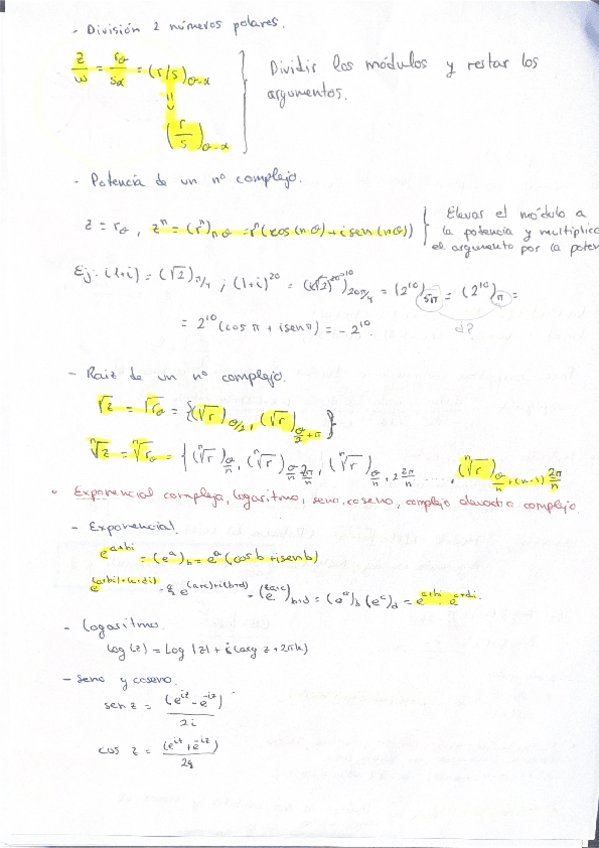 - División 2 números polares.
z/w = r_θ/s_α = (r/s)_θ-α } Dividir los módulos y restar los argumentos.
=
(r/s)_θ-α
- Potencia de un nº complejo.
z = r_θ, z^n = (r^n)_nθ = r^n(cos(nθ)+isen(nθ)) } Elevar el módulo a
la potencia y multiplica
el argumento por la poten
Ej: (1+i) = (√2)_π/4 ; (1+i)^20 = ((√2)^20)_20π/4 = (2^10)_5π = (2^10)_π =
d?
= 2^10 (cos π + isen π) = -2^10.
- Raiz de un nº complejo.
√z = √r_θ = {(√r)_θ/2, (√r)_θ/2+π}
ⁿ√z = ⁿ√r_θ = {(ⁿ√r)_θ/n, (ⁿ√r)_θ/n 2π/n, (ⁿ√r)_θ/n, 2 2π/n ..., (ⁿ√r)_θ/n+(n-1) 2π/n
• Exponencial compleja, logaritmo, seno, coseno, complejo elevado a complejo.
- Exponencial.
e^a+bi = (e^a)_b = e^a (cos b + isen b)
e^(a+bi)+(c+di) = e^(a+c)+i(b+d) = (e^a+c)_b+d = (e^a)_b (e^c)_d = e^a+bi · e^c+di.
- Logaritmo.
Log (z) = Log |z| + i(arg z + 2πk)
- Seno y coseno.
sen z = (e^iz - e^-iz)/2i
cos z = (e^iz + e^-iz)/2